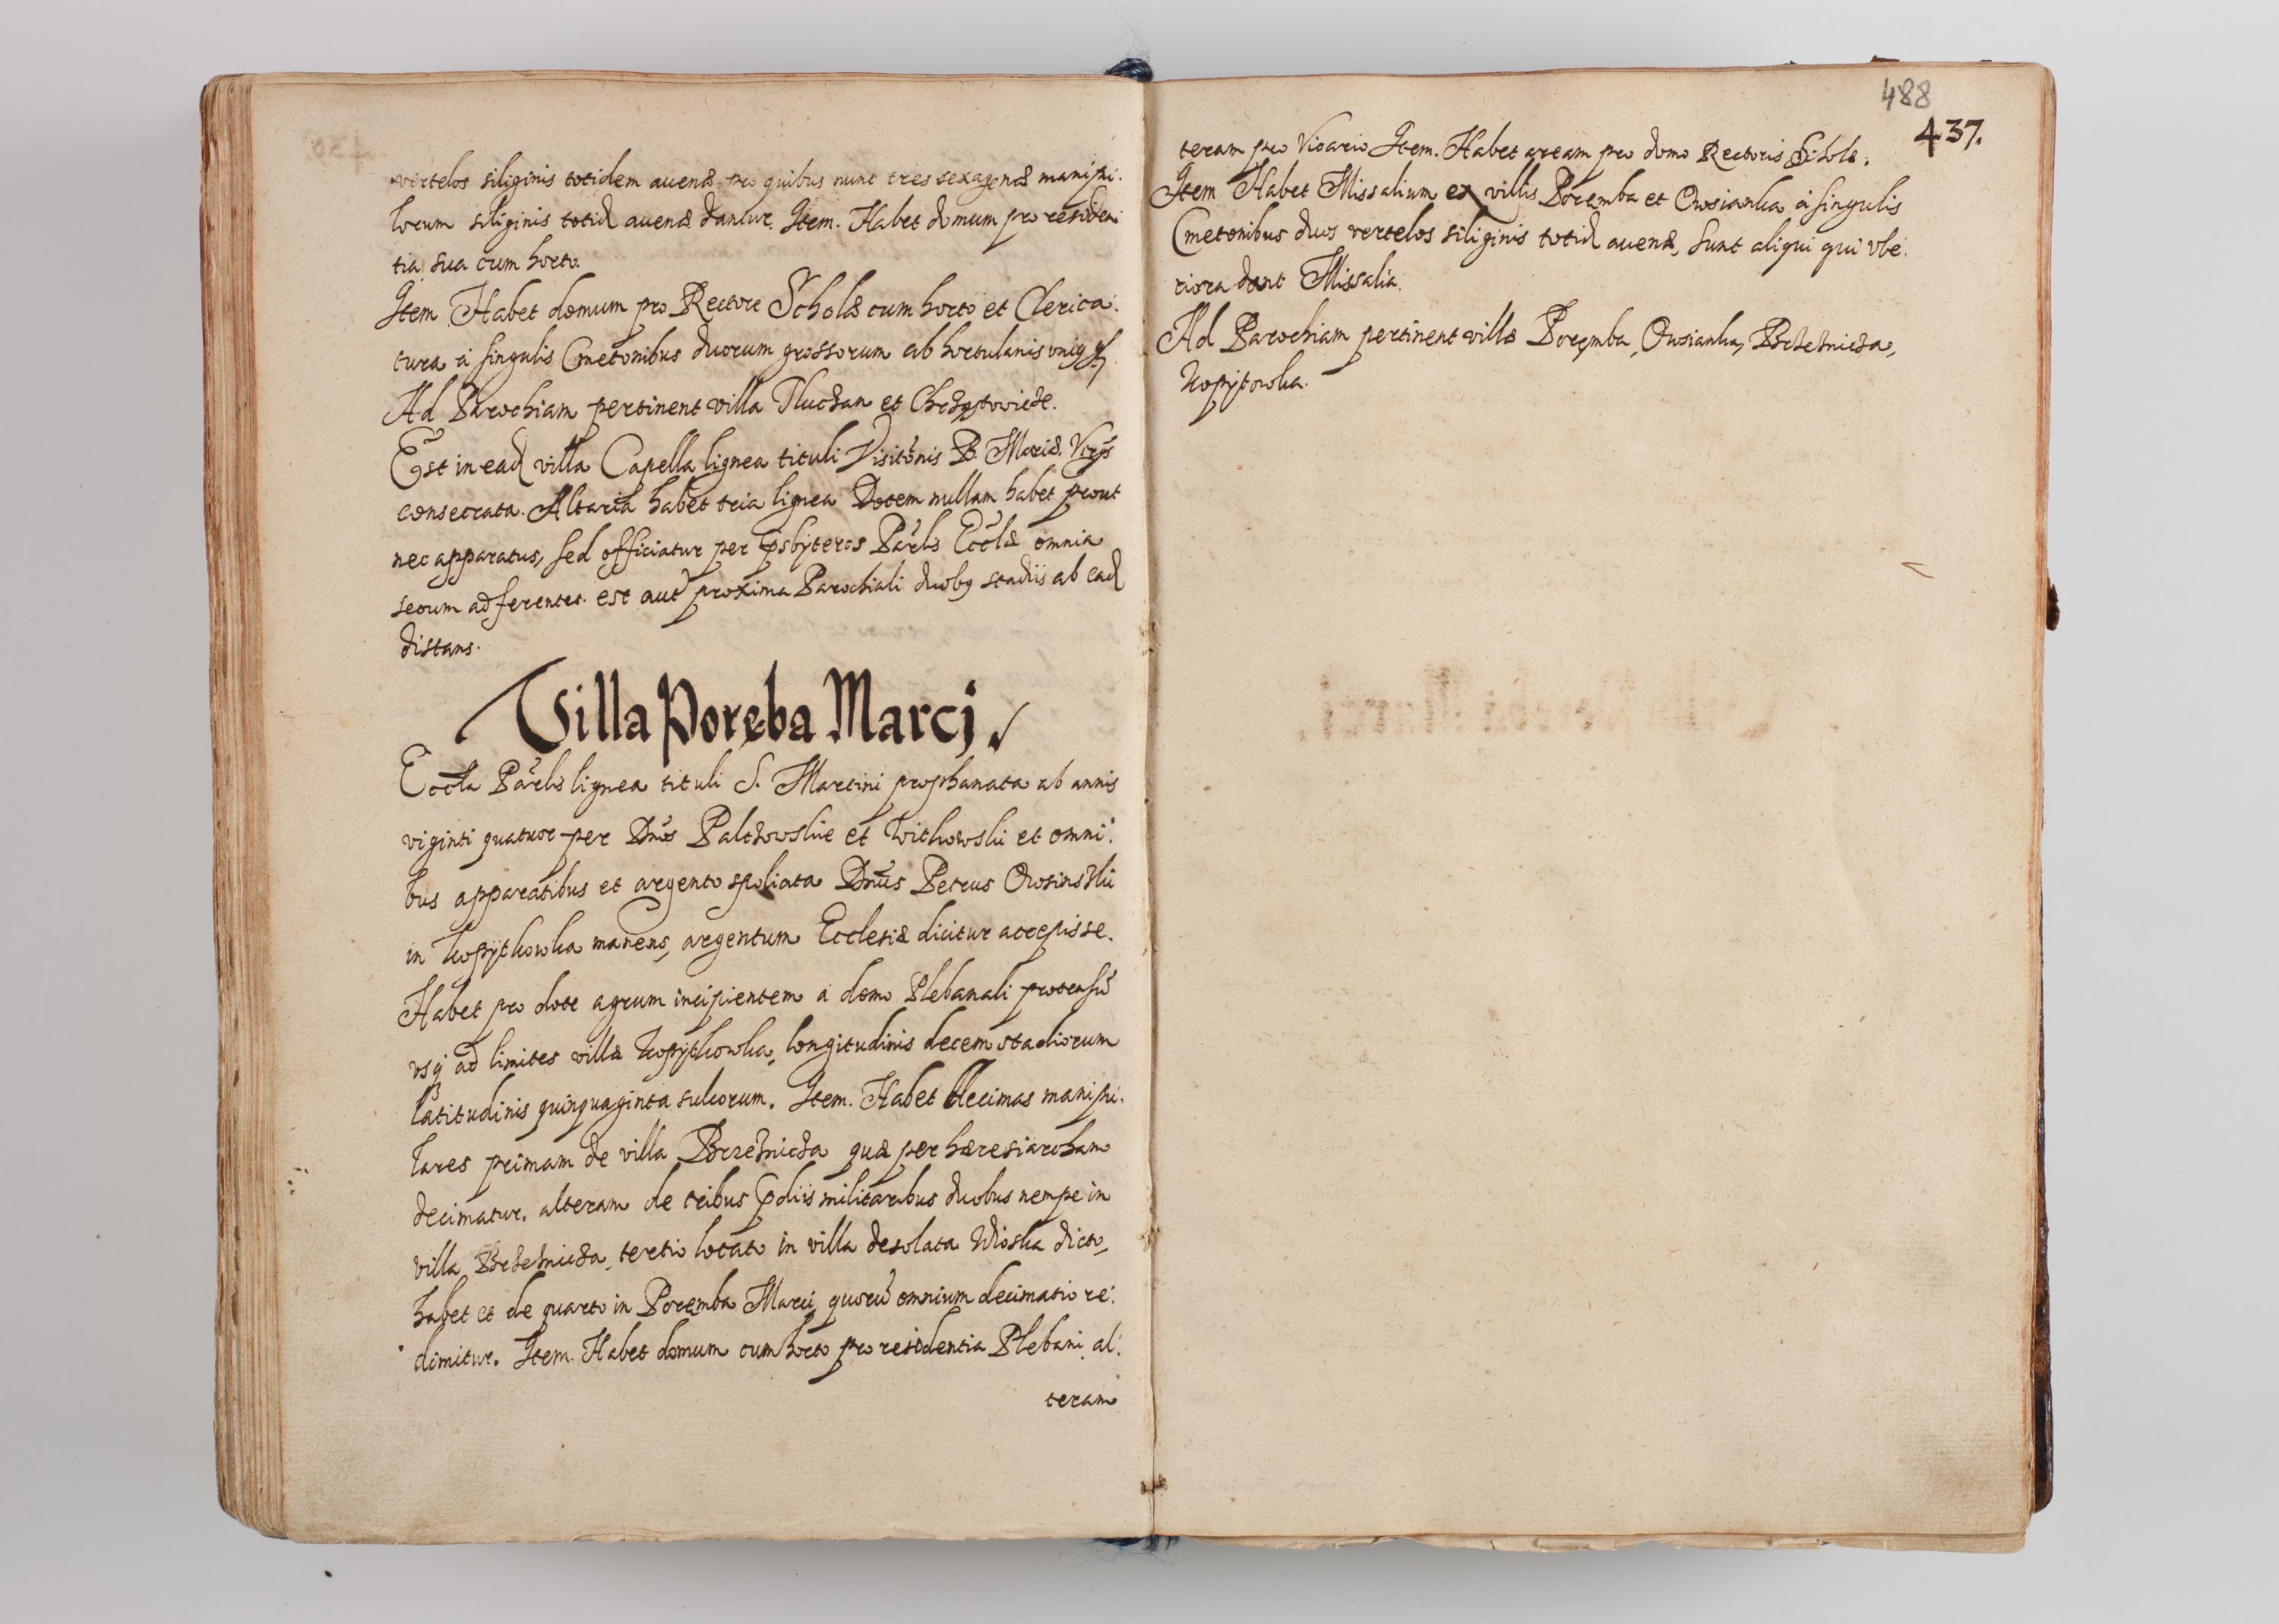 vertelos siliginis totidem auenæ pro quibus nunc tres sexagenæ manipu:
lorum siliginis totid auenæ dantur. Item. Habet domum pro residen:
tia sua cum horto.
Item Habet domum pro Rectore Scholæ cum horto et Clerica:
tura à singulis Cmetonibus duorum grossorum ab hortulanis vnig
Ad Parochiam pertinent villa Tluczan et Chrzӱstowicze.
Est in ead villa Capella lignea tituli Visitõnis B. Mariæ. Virgis
consecrata. Altaria habet tria lignea Dotem nullam habet prout
nec apparatus, sed officiatur per Psbyteros Parlis Ecclæ omnia
secum adferentes. est aut proxima Parochiali duobg stadiis ab ead
distans.
Villa Poręba Marcj.
Eccla Parlis lignea tituli S. Martini prophanata ab annis
viginti quatuor per Dnos Palczowskie et Witkowski et omni:
bus apparatibus et argento spoliata Dnus Petrus Owsinski
in Kopӱtkowka manens, argentum Ecclesiæ dicitur accepisse.
Habet pro dote agrum incipientem à domo Plebanali protensũ
vsq ad limites villæ Kopӱtkowka, longitudinis decem stadiorum
latitudinis quinquaginta sulcorum. Item. Habet decimas manipu:
lares primam de villa Brzeznicza quæ per hæresiarcham
decimatur. alteram de tribus Pdiis militaribus duobus nempe in
villa Brzeznicza, tertio locato in villa desolata Wioska dicto,
habet et de quarto in Poremba Marci, quorũ omnium decimatio re:
dimitur. Item. Habet domum cum horto pro residentia Plebani, al:
teram
488
437.
teram pro Vicario Item. Habet aream pro domo Rectoris Scholæ.
Item Habet Missalium ex villis Poremba et Owsianka à singulis
Cmetonibus duos vertelos siliginis totid auenæ, sunt aliqui qui vbe:
riora dant Missalia.
Ad Parochiam pertinent villæ Poręmba, Owsianka, Brzeznicza,
Kopӱtowka.